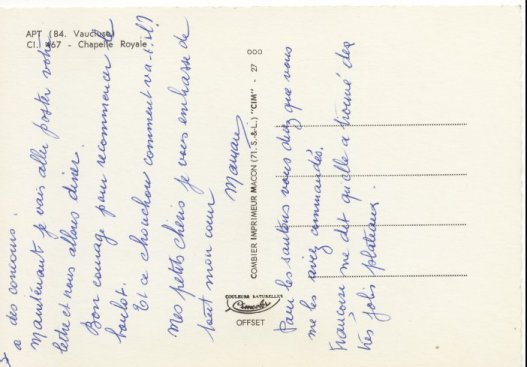 APT (84. Vaucluse)
Cl. 467 - Chapelle Royale
a des concours.
Maintenant je vais aller poster votre
lettre et nous allons diner.
Bon courage pour recommencer le
boulot.
Et ce chouchou comment va-t-il?
Mes petits chéris je vous embrasse de
tout mon coeur
Maman
COMBIER IMPRIMEUR MACON (71. S.-&-L.) "CIM" - 27 000
COULEURS NATURELLES
Cimcolor
OFFSET
Pour les santons vous disiez que vous
me les aviez commandés.
Françoise me dit qu'elle a trouvé des
très jolis plateaux.